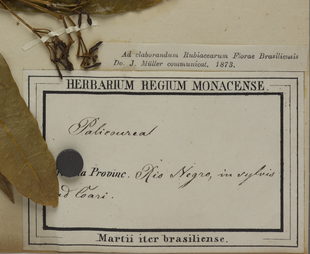 Ad elaborandum Rubiacearum Florae Brasiliensis
Do. J. Müller communicat. 1873.
HERBARIUM REGIUM MONACENSE.
Palicourea
da Provinc. Rio Negro, in sylvis
ad Coari.
Martii iter brasiliense.